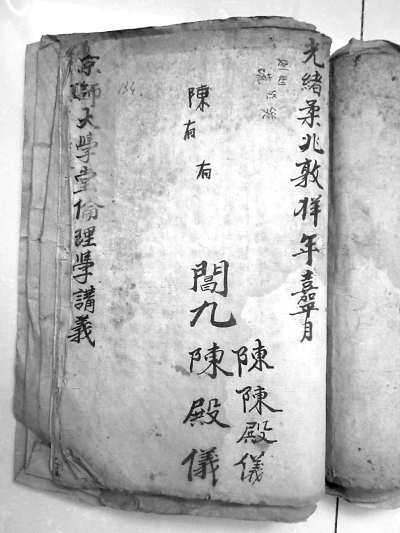 光緒柔兆敦牂年嘉平月
陳陳殿儀
陳有有
閶九陳殿儀
134.
京師大學堂倫理學講義